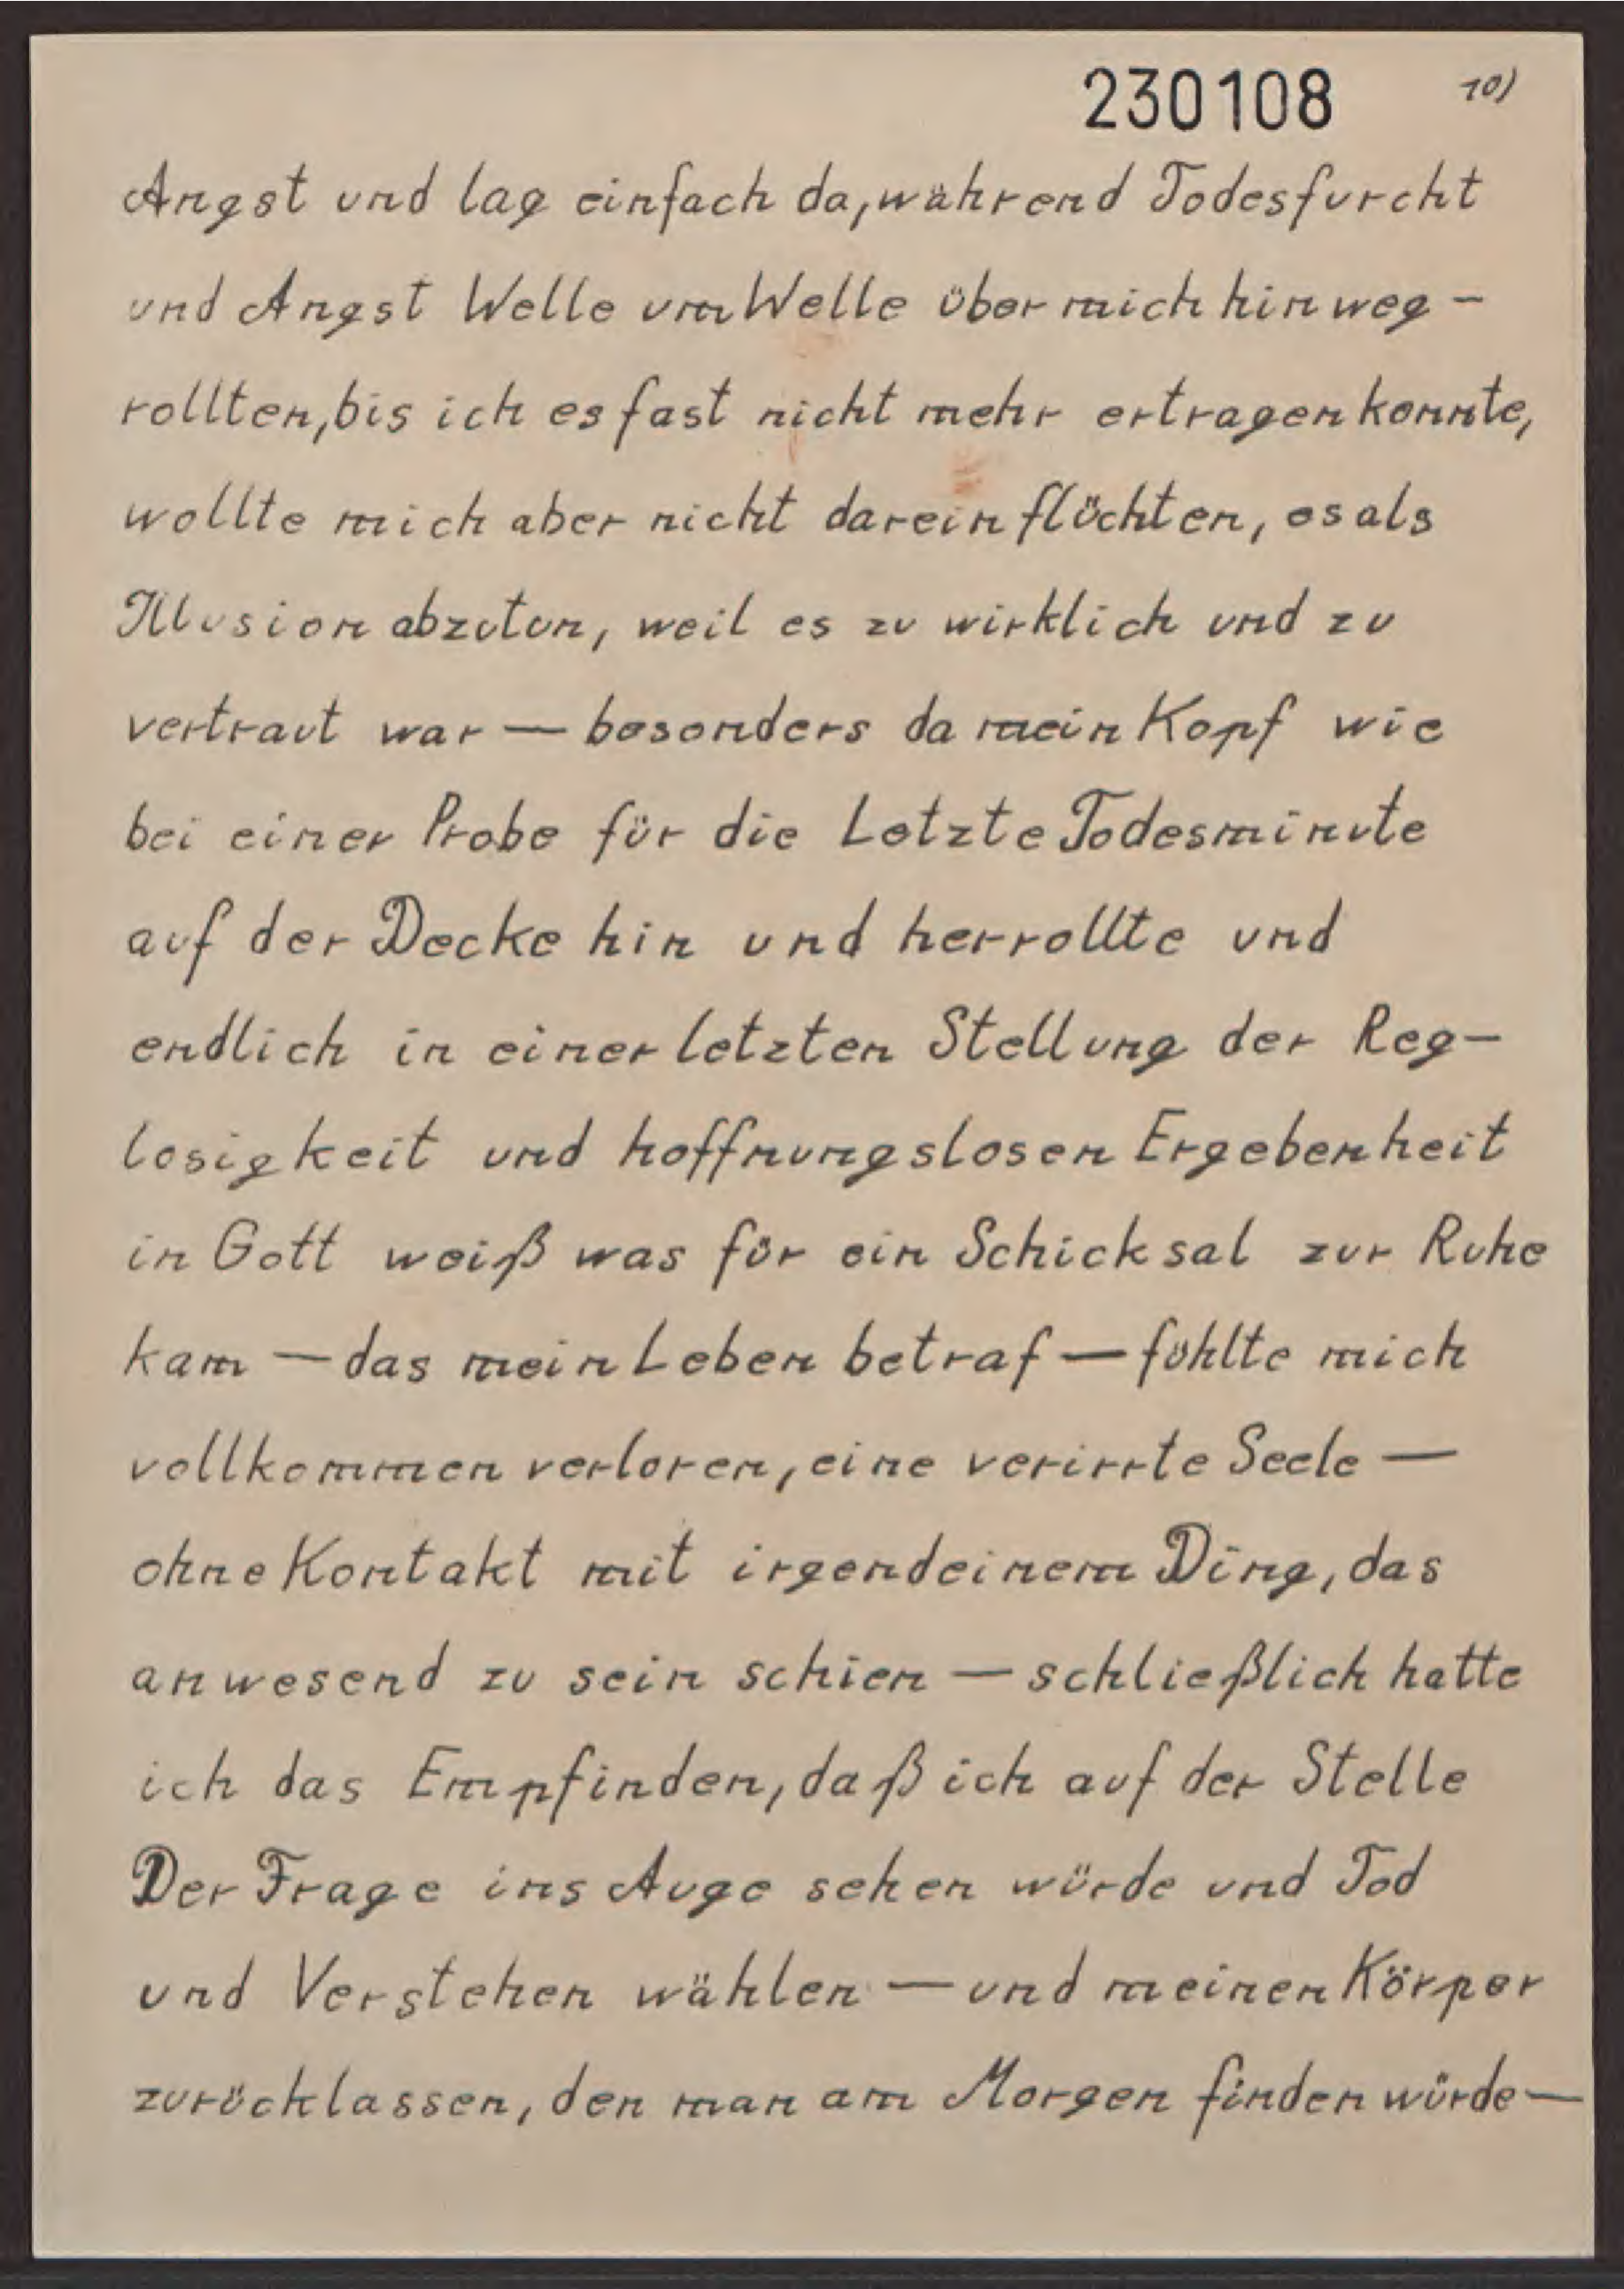 230108 10)
Angst und lag einfach da, während Todesfurcht
und Angst Welle um Welle über mich hinweg-
rollten, bis ich es fast nicht mehr ertragen konnte,
wollte mich aber nicht darein flüchten, es als
Illusion abzutun, weil es zu wirklich und zu
vertraut war — besonders da mein Kopf wie
bei einer Probe für die Letzte Todesminute
auf der Decke hin und herrollte und
endlich in einer letzten Stellung der Reg-
losigkeit und hoffnungslosen Ergebenheit
in Gott weiß was für ein Schicksal zur Ruhe
kam — das mein Leben betraf — fühlte mich
vollkommen verloren, eine verirrte Seele —
ohne Kontakt mit irgendeinem Ding, das
anwesend zu sein schien — schließlich hatte
ich das Empfinden, daß ich auf der Stelle
Der Frage ins Auge sehen würde und Tod
und Verstehen wählen — und meinen Körper
zurücklassen, den man am Morgen finden würde —